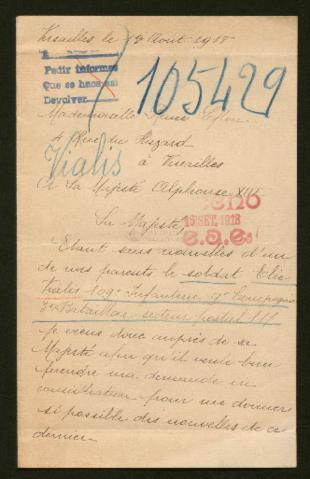 Versailles le 12 Août 1918
Pedir informes
Que se hace así
Devolver
105429
Mademoiselle
4 Rue du Hazard
à Versailles
Vialis
A Sa Majesté Alphonse XIII
Sa Majesté
SET. 1918
Etant sans nouvelles d'un
de mes parents le soldat Elie
Vialis 109e Infanterie 9e Compagnie
3e Bataillon secteur postal 111
je viens donc auprès de sa
Majesté afin qu'il veule bien
prendre ma demande en
considération pour me donner
si possible des nouvelles de ce
dernier.